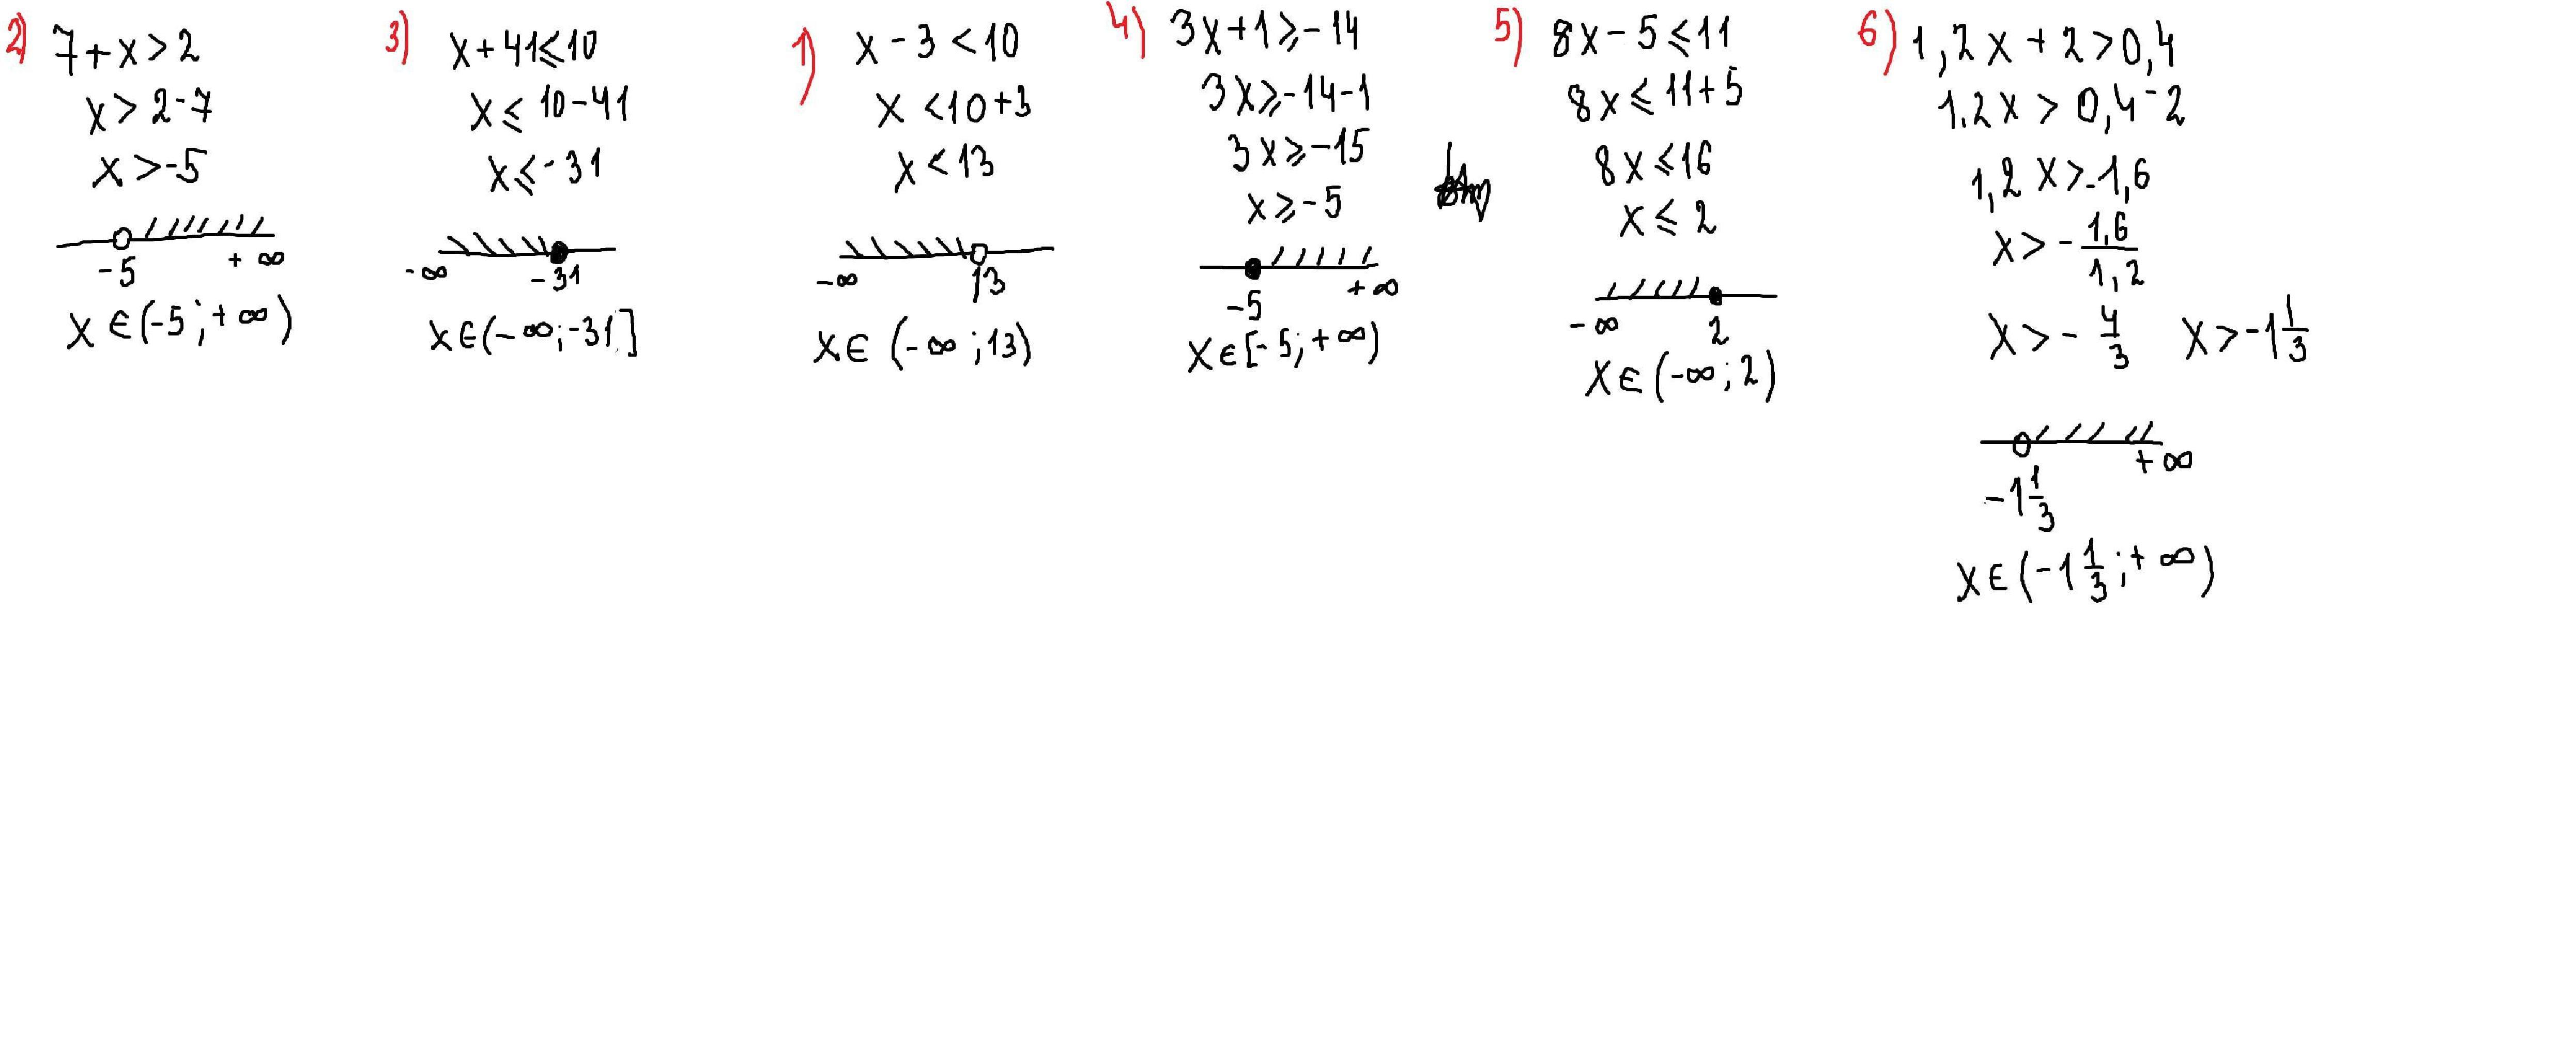 2) 7+x>2
x>2-7
x>-5
-5 +∞
x∈(-5;+∞)
3) x+41≤10
x≤10-41
x≤-31
-∞ -31
x∈(-∞;-31]
1) x-3<10
x<10+3
x<13
-∞ 13
x∈(-∞;13)
4) 3x+1≥-14
3x≥-14-1
3x≥-15
x≥-5
-5 +∞
x∈[-5;+∞)
5) 8x-5≤11
8x≤11+5
8x≤16
x≤2
-∞ 2
x∈(-∞;2)
6) 1,2x+2>0,4
1.2x>0,4-2
1,2x>-1,6
x>-1,6/1,2
x>-4/3 x>-1 1/3
+∞
-1 1/3
x∈(-1 1/3;+∞)